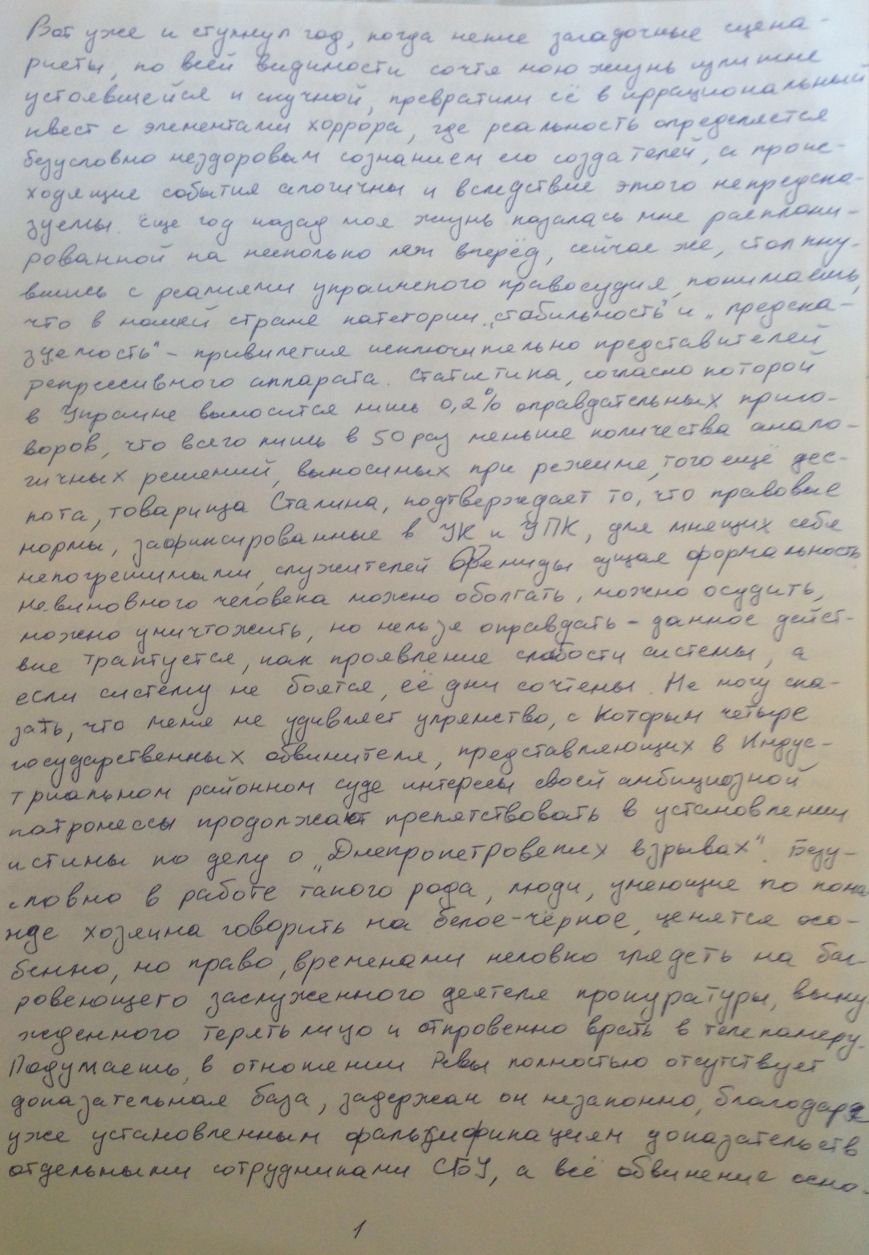 Вот уже и стукнул год, когда некие загадочные сцена-
ристы, по всей видимости сочтя мою жизнь излишне
устоявшейся и скучной, превратили её в иррациональный
квест с элементами хоррора, где реальность определяется
безусловно нездоровым сознанием его создателей, а проис-
ходящие события алогичны и вследствие этого непредска-
зуемы. Ещё год назад моя жизнь казалась мне расплани-
рованной на несколько лет вперёд, сейчас же, столкну-
вшись с реалиями украинского правосудия, понимаешь,
что в нашей стране категории „стабильность" и „предска-
зуемость" - привилегия исключительно представителей
репрессивного аппарата. Статистика, согласно которой
в Украине выносится лишь 0,2% оправдательных приго-
воров, что всего лишь в 50 раз меньше количества анало-
гичных решений, выносимых при режиме, того ещё дес-
пота, товарища Сталина, подтверждает то, что правовые
нормы, зафиксированные в УК и УПК, для мнящих себя
непогрешимыми, служителей Фемиды сущая формальность.
Невиновного человека можно оболгать, можно осудить,
можно уничтожить, но нельзя оправдать - данное дейст-
вие трактуется, как проявление слабости системы, а
если систему не боятся, её дни сочтены. Не могу ска-
зать, что меня не удивляет упрямство, с которым четыре
государственных обвинителя, представляющих в Индус-
триальном районном суде интересы своей амбициозной
патронессы продолжают препятствовать в установлении
истины по делу о „Днепропетровских взрывах". Безу-
словно в работе такого рода, люди, умеющие по кома
нде хозяина говорить на белое-чёрное, ценятся осо-
бенно, но право, временами неловко глядеть на баг-
ровеющего заслуженного деятеля прокуратуры, выну
жденного терять лицо и откровенно врать в телекамеру.
Подумаешь, в отношении Ревы полностью отсутствует
доказательная база, задержан он незаконно, благодаря
уже установленным фальсификациям доказательств
отдельными сотрудниками СБУ, а всё обвинение осно-
1